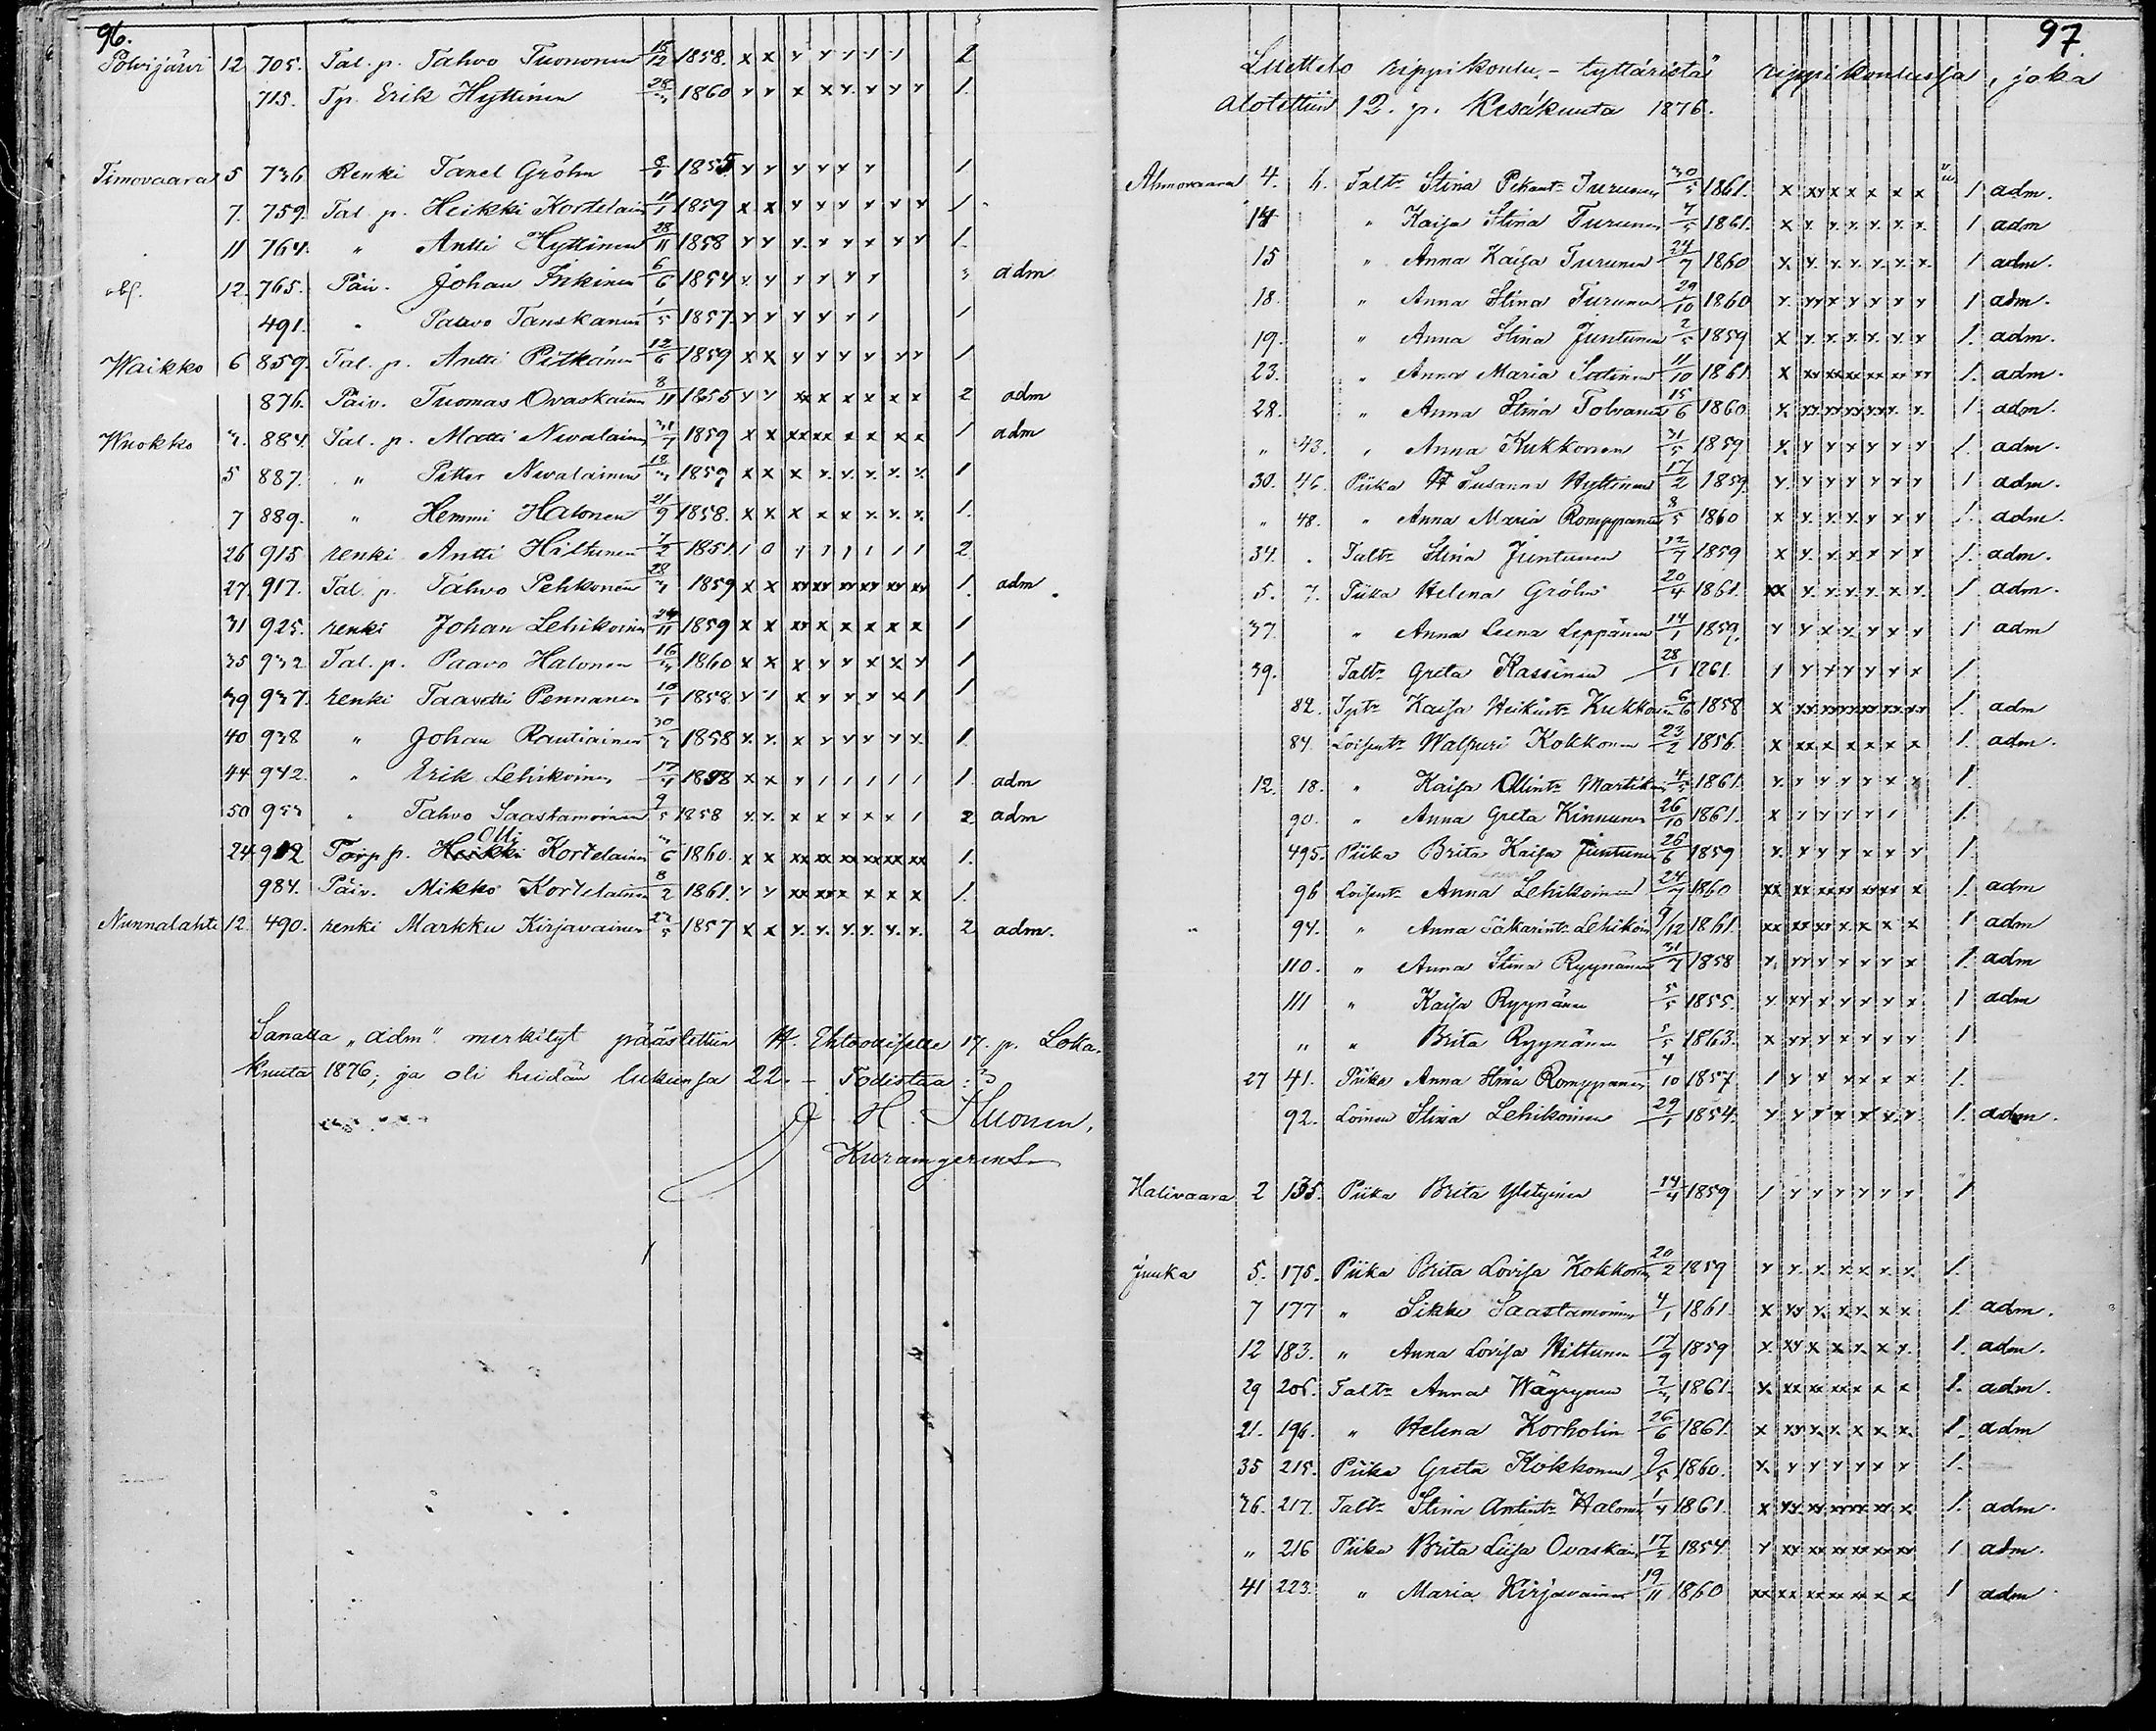 96.
Polvijärvi 12 705. Tal. p. Tahvo Tuononen 15/12 1858. x x y y y 1 1 2
715. Tp. Erik Hyttinen 28/3 1860 y y x x y y y y 1.
Timovaara 5 736 Renki Tanel Gröhn 1855 y y y y y y y 1
7. 759. Tal. p. Heikki Kortelain 11/1 1859 x x y y y y y y 1
11 764. " Antti Hyttinen 28/11 1858 y y y y y y y y 1.
12. 765. Päiv. Johan Inkinen 6/6 1854 adm
491. " Paavo Tanskanen 1/5 1857. 1
Waikko 6 859. Tal. p. Antti Pitkänen 12/6 1859 x x y y y y y y 1
876. Päiv. Tuomas Ovaskainen 8/11 1855 y y xx x x x x x 2 adm
Wuokko 3. 884. Tal. p. Matti Nevalainen 31/7 1859 x x xx xx x x x x 1 adm
5 887. " Petter Nevalainen 1859 x x x y y y y y 1
7 889. " Hemmi Halonen 21/9 1858. x x x x x x x x 1.
26 915 renki Antti Hiltunen 7/2 1851. 1 0 1 1 1 1 1 1 2.
27. 917. Tal. p. Tahvo Pehkonen 28/3 1859 x x xx xx xx xx xx xx 1. adm.
31 925. renki Johan Lehikoinen 24/11 1859 x x xx x x x x x 1
35 932 Tal. p. Paavo Halonen 16/3 1860 x x x y y x x y 1
39 937. renki Taavetti Pennanen 10/1 1858. 1
40 938 " Johan Rautiainen 30/3 1858 y. y. x y y y y y. 1.
44 942. " Erik Lehikoinen 17/4 1858 x x y 1 1 1 1 1 1. adm
50 953 " Tahvo Saastamoinen 9/5 1858 y. y. x x x x x 1 2 adm
24. 912 Torp p. Olli Kortelainen 3/6 1860. x x xx xx xx xx xx xx 1.
984. Päiv. Mikko Kortelainen 8/2 1861. y y xx xx x x x x 1.
Nunnalahti 12. 490. renki Markku Kirjavainen 23/5 1857 x x y. y. y. y. y. y. 2 adm.
Sanalla „adm" merkityt päästettiin H. Ehtoolliselle 17. p. Loka-
kuuta 1876; ja oli heidän lukunsa 22. – Todistaa:
J. H. Stuonen,
97
Luettelo rippikoulu-tyttäristä rippikoulussa, joka
alotettiin 12. p. Kesäkuuta 1876.
Ahmovaara 4. 6. Taltr Stina Pekantr Turunen 30/5 1861. x xy x x x x x 1 adm.
14 " Kaisa Stina Turunen 7/5 1861. x y. y. y. y. y. y. 1 adm
15 " Anna Kaisa Turunen 24/7 1860 x. y. y. y. y. y. y. 1 adm.
18. " Anna Stina Turunen 29/10 1860 y. yy x y y y y 1 adm.
19. " Anna Stina Juntunen 2/5 1859 x y. y. y. y. y. y 1. adm.
23. " Anna Maria Satinen 11/10 1861 x xx xx xx xx xx xx 1. adm.
28. " Anna Stina Tolvanen 15/6 1860 1. adm.
" 43. " Anna Kukkonen 31/5 1859 y. y y y y y y 1. adm.
30. 46. Piika Susanna Hyttinen 17/2 1859. y. y y y y y y 1 adm.
" 48. " Anna Maria Romppanen 8/5 1860 x y. y. y. y y y 1. adm.
34. . Taltr Stina Juntunen 12/7 1859 x y. y. y y y y 1. adm.
5. 7. Piika Helena Gröhn 20/4 1861. xx y. y. y. y. x. y. 1 adm.
37. " Anna Leena Leppänen 14/1 1859. y y x x y y y 1 adm
39. Taltr Greta Kassinen 28/1 1861. 1 y y y y y x 1
82. Tptr Kaisa Heikintr Kukkonen 6/6 1858 x xx xx xx xx xx xx 1. adm
84. Loisentr Walpuri Kokkonen 23/2 1856. x xx x x x x x 1. adm.
12. 18. " Kaisa Ollintr Martikain 4/5 1861. y. y y y y x y 1.
90. " Anna Greta Kinnunen 26/10 1861. x y y y y 1 1.
495. Piika Brita Kaisa Juntunen 26/6 1859 x. x y y y y y 1.
96 Loisentr Anna Lehikoinen 24/7 1860 xx xx xx xx xx xx x 1. adm
94. " Anna Sakarintr Lehikoin 9/12 1861. xx xx xx x x x x 1 adm
110. " Anna Stina Ryynänen 31/7 1858 y. yy y y y y x 1. adm
111 " Kaisa Ryynänen 5/5 1855. y. xy y y y y y 1 adm
" " Brita Ryynänen 5/5 1863. x y y y y y y 1
27 41. Piika Anna Stina Romppanen 4/10 1857 1 y x xx x x 1.
92. Loinen Stina Lehikoinen 29/1 1854. y y y x y y. y. 1. adm.
Halivaara 2 135. Piika Brita Ylityinen 14/4 1859 1 y y y y y y 1
Juuka 5. 175. Piika Brita Lovisa Kokkonen 20/2 1859 y y. y. y. y. y. y. 1.
7 177 " Sikke Saastamoinen 4/1 1861. x yy y. y. y. x x 1. adm.
12 183. " Anna Lovisa Hiltunen 17/9 1859 y. xy x x y. x y. 1. adm.
29 206. Taltr Anna Wäyrynen 7/3 1861. x. xx xx xx x x x 1. adm.
21. 196. " Helena Korholin 26/6 1861. x xy x. x x. x. x. 1. adm
35 215. Piika Greta Kokkonen 9/5 1860. x. y y y y y y 1.
36. 217. Taltr Stina Antintr Halonen 1/4 1861. x yy. xx xx xx xx x. 1. adm.
" 216 Piika Brita Liisa Ovaskain 17/2 1854 y xy xx xx xx xx xx 1 adm.
41 223. " Maria Kirjavainen 19/11 1860 xx xx xx xx xx x x 1 adm